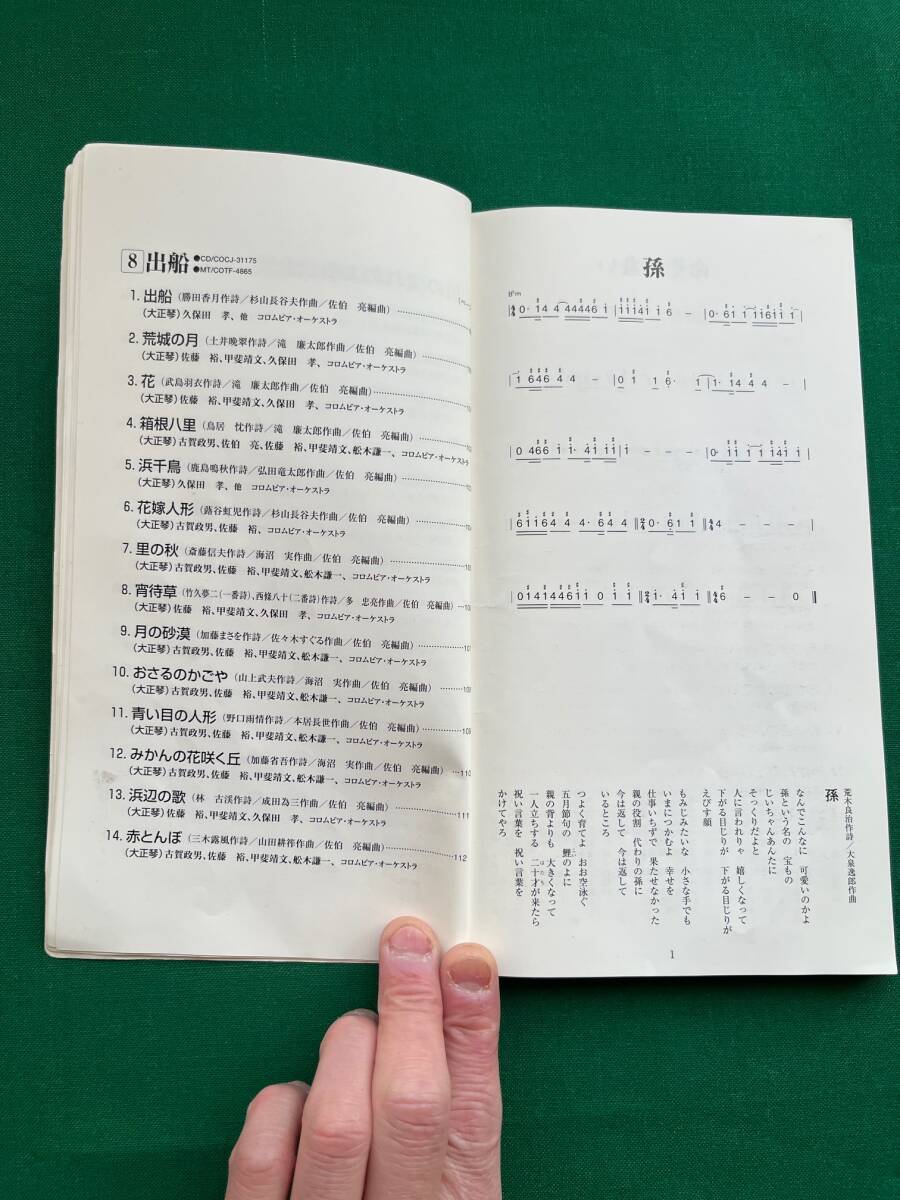 8 出船 ●CD/COCJ-31175
●MT/COTF-4865
1. 出船 (勝田香月作詩／杉山長谷夫作曲／佐伯 亮編曲)
(大正琴)久保田 孝、他 コロムビア・オーケストラ
2. 荒城の月 (土井晩翠作詩／滝 廉太郎作曲／佐伯 亮編曲)
(大正琴)佐藤 裕、甲斐靖文、久保田 孝、コロムビア・オーケストラ
3. 花 (武島羽衣作詩／滝 廉太郎作曲／佐伯 亮編曲)
(大正琴)佐藤 裕、甲斐靖文、久保田 孝、コロムビア・オーケストラ
4. 箱根八里 (鳥居 忱作詩／滝 廉太郎作曲／佐伯 亮編曲)
(大正琴)古賀政男、佐伯 亮、佐藤 裕、甲斐靖文、舩木謙一、コロムビア・オーケストラ
5. 浜千鳥 (鹿島鳴秋作詩／弘田竜太郎作曲／佐伯 亮編曲)
(大正琴)久保田 孝、他 コロムビア・オーケストラ
6. 花嫁人形 (蕗谷虹児作詩／杉山長谷夫作曲／佐伯 亮編曲)
(大正琴)古賀政男、佐藤 裕、コロムビア・オーケストラ
7. 里の秋 (斎藤信夫作詩／海沼 実作曲／佐伯 亮編曲)
(大正琴)古賀政男、佐藤 裕、甲斐靖文、舩木謙一、コロムビア・オーケストラ
8. 宵待草 (竹久夢二(一番詩)、西條八十(二番詩)作詩／多 忠亮作曲／佐伯 亮編曲)
(大正琴)佐藤 裕、甲斐靖文、久保田 孝、コロムビア・オーケストラ
9. 月の砂漠 (加藤まさを作詩／佐々木すぐる作曲／佐伯 亮編曲)
(大正琴)古賀政男、佐藤 裕、甲斐靖文、舩木謙一、コロムビア・オーケストラ
10. おさるのかごや (山上武夫作詩／海沼 実作曲／佐伯 亮編曲)
(大正琴)古賀政男、佐藤 裕、甲斐靖文、舩木謙一、コロムビア・オーケストラ
11. 青い目の人形 (野口雨情作詩／本居長世作曲／佐伯 亮編曲)
(大正琴)古賀政男、佐藤 裕、甲斐靖文、舩木謙一、コロムビア・オーケストラ
12. みかんの花咲く丘 (加藤省吾作詩／海沼 実作曲／佐伯 亮編曲)
(大正琴)古賀政男、佐藤 裕、甲斐靖文、舩木謙一、コロムビア・オーケストラ
13. 浜辺の歌 (林 古渓作詩／成田為三作曲／佐伯 亮編曲) 111
(大正琴)佐藤 裕、甲斐靖文、久保田 孝、コロムビア・オーケストラ
14. 赤とんぼ (三木露風作詩／山田耕筰作曲／佐伯 亮編曲) 112
(大正琴)古賀政男、佐藤 裕、甲斐靖文、舩木謙一、コロムビア・オーケストラ
孫
孫
荒木良治作詩／大泉逸郎作曲
なんでこんなに 可愛いのかよ
孫という名の 宝もの
じいちゃんあんたに
そっくりだよと
人に言われりゃ 嬉しくなって
下がる目じりが 下がる目じりが
えびす顔
もみじみたいな 小さな手でも
いまにつかむよ 幸せを
仕事いちずで 果たせなかった
親の役割 代わりの孫に
今は返して 今は返して
いるところ
つよく育てよ おお空泳ぐ
五月節句の 鯉のよに
親の背よりも 大きくなって
一人立ちする 二十才が来たら
祝い言葉を 祝い言葉を
かけてやろ
1